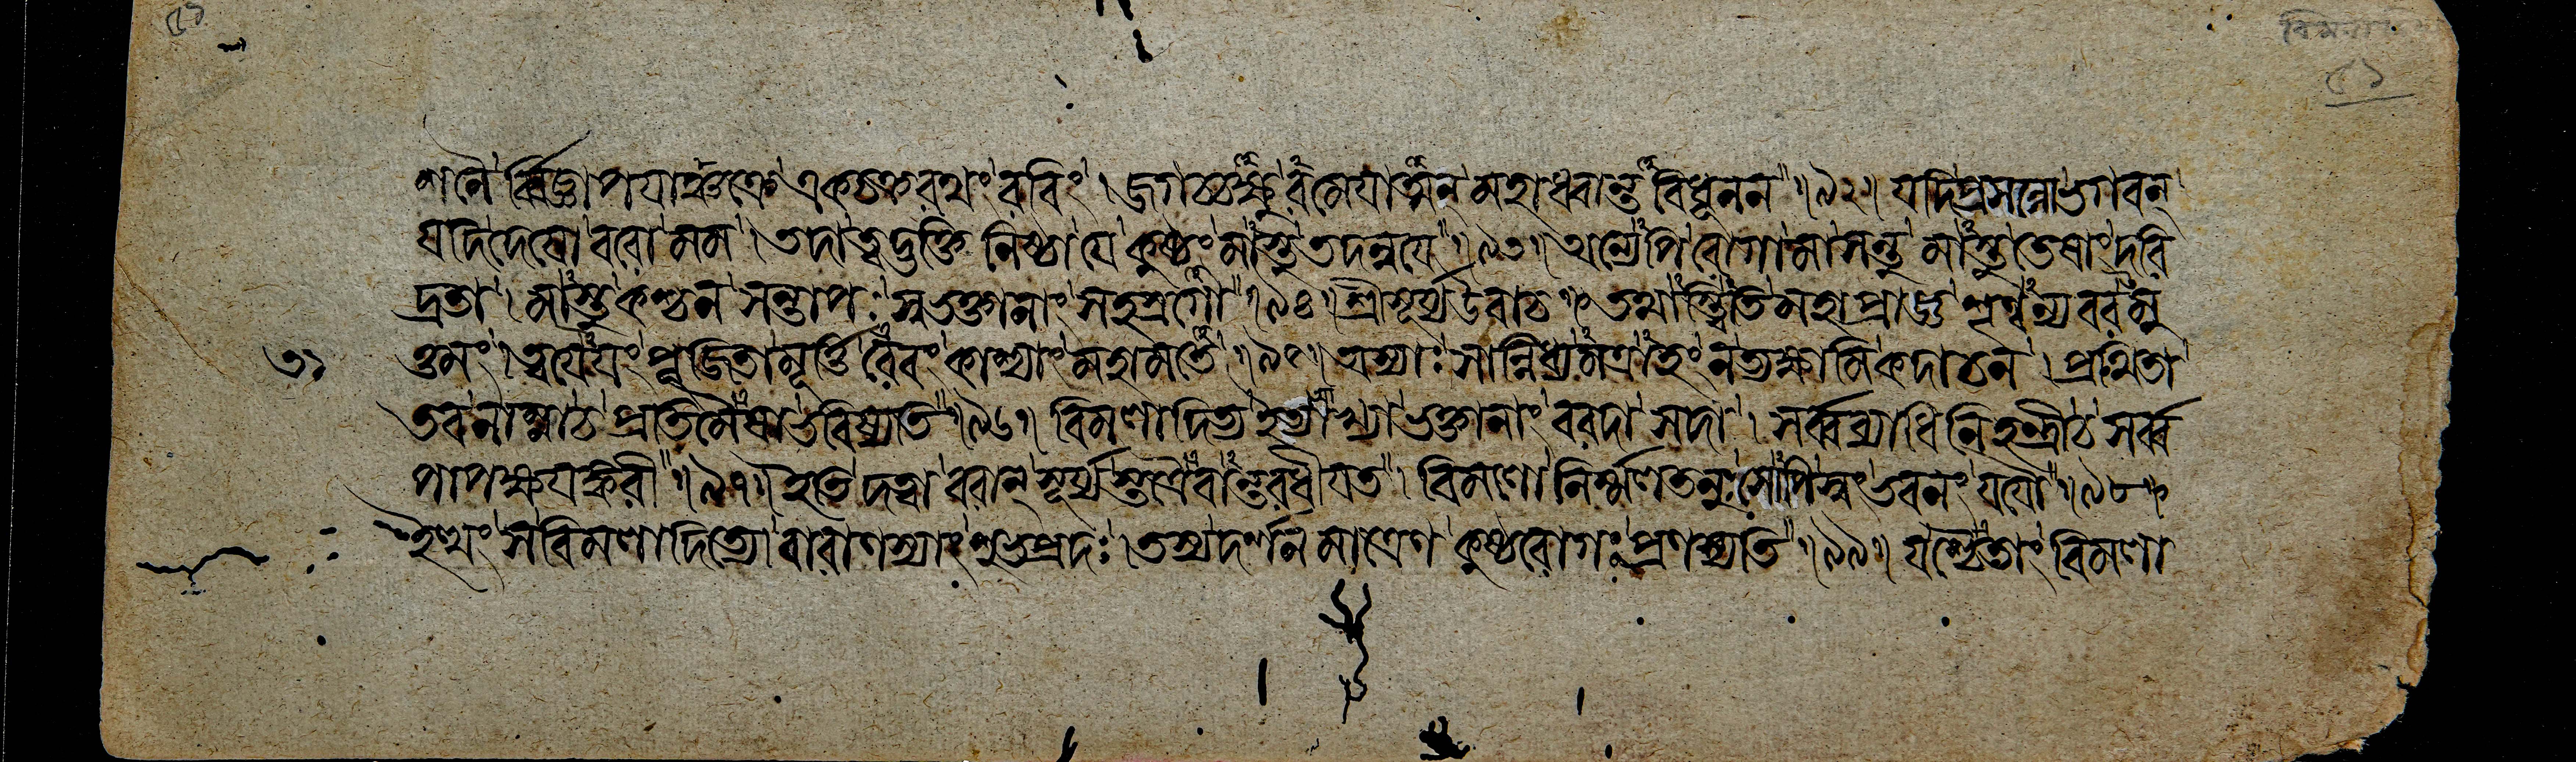 ৫১
বিমলা
৫১
শনৈ র্ব্বিজ্ঞাপযাঞ্চক্রে একচক্ররথং রবিং । জগচ্চক্ষুরমেযাত্মন্ মহাধ্বান্ত বিধূনন ॥ ৯২ ॥ যদি প্রসন্নো ভগবন্
যদি দেযো বরো মম । তদা ত্বদ্ভক্তি নিষ্ঠা যে কুষ্ঠং মাস্তু তদন্বযে ॥ ৯৩ ॥ অন্যেপি রোগা মা সন্তু মাস্তু তেষাং দরি
দ্রতা । মাস্তু কশ্চন সন্তাপঃ ত্বদ্ভক্তানাং সহস্রগো ॥ ৯৪ ॥ শ্রীসূর্য্য উবাচ ॥ তথাস্ত্বিতি মহাপ্রাজ্ঞ শৃণ্বন্যং বরমু
ত্তমং । ত্বযেযং পূজিতা মূর্ত্তি রেবং কাশ্যাং মহামতে ॥ ৯৫ ॥ অস্যাঃ সান্নিধ্যমত্রাহং ন ত্যক্ষামি কদাচন । প্রথিতা
৩১
তব নাম্নাচ প্রতিমৈষা ভবিষ্যতি ॥ ৯৬ ॥ বিমলাদিত্য ইত্যাখ্যা ভক্তানাং বরদা সদা । সর্ব্বব্যাধি নিহন্ত্রীচ সর্ব্ব
পাপক্ষযঙ্করী ॥ ৯৭ ॥ ইতি দত্বা বরান্ সূর্য্য স্তত্রৈবান্তরধীযত । বিমলো নির্ম্মলতনুঃ সোপি স্বং ভবনং যযৌ ॥ ৯৮ ॥
ইত্থং স বিমলাদিত্যো বারাণস্যাং শুভপ্রদঃ । তস্য দর্শন মাত্রেণ কুষ্ঠরোগঃ প্রণশ্যতি ॥ ৯৯ ॥ যশ্চৈতাং বিমলা